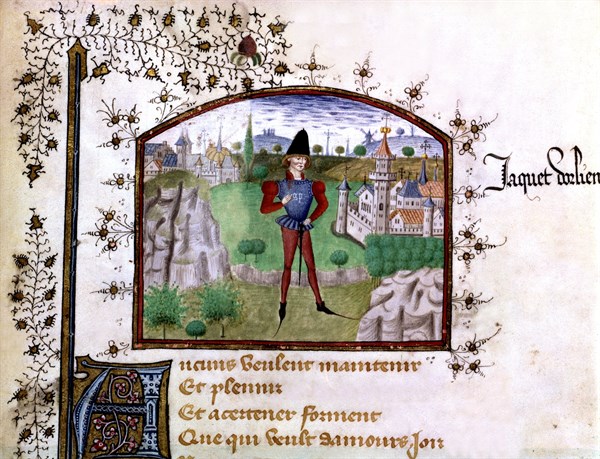 Jaquet dorlien
Aucuns veulent maintenir
Et plevir
Et acertener forment
Que qui veult damours Joir